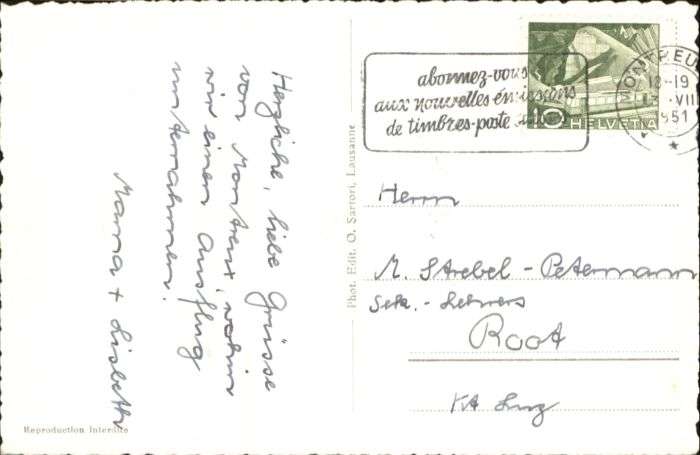 Herzliche, liebe Grüsse
von Montreux, wohin
wir einen Ausflug
unternahmen.
Mama + Lisbeth
Reproduction Interdite
Phot. Edit. O. Sartori, Lausanne
abonnez-vous
aux nouvelles émissions
de timbres-poste suisses
10 HELVETIA
MONTREUX
12-19
VII
1951
Herrn
M. Strebel - Petermann
Sek. - Lehrers
Root
Kt Luz